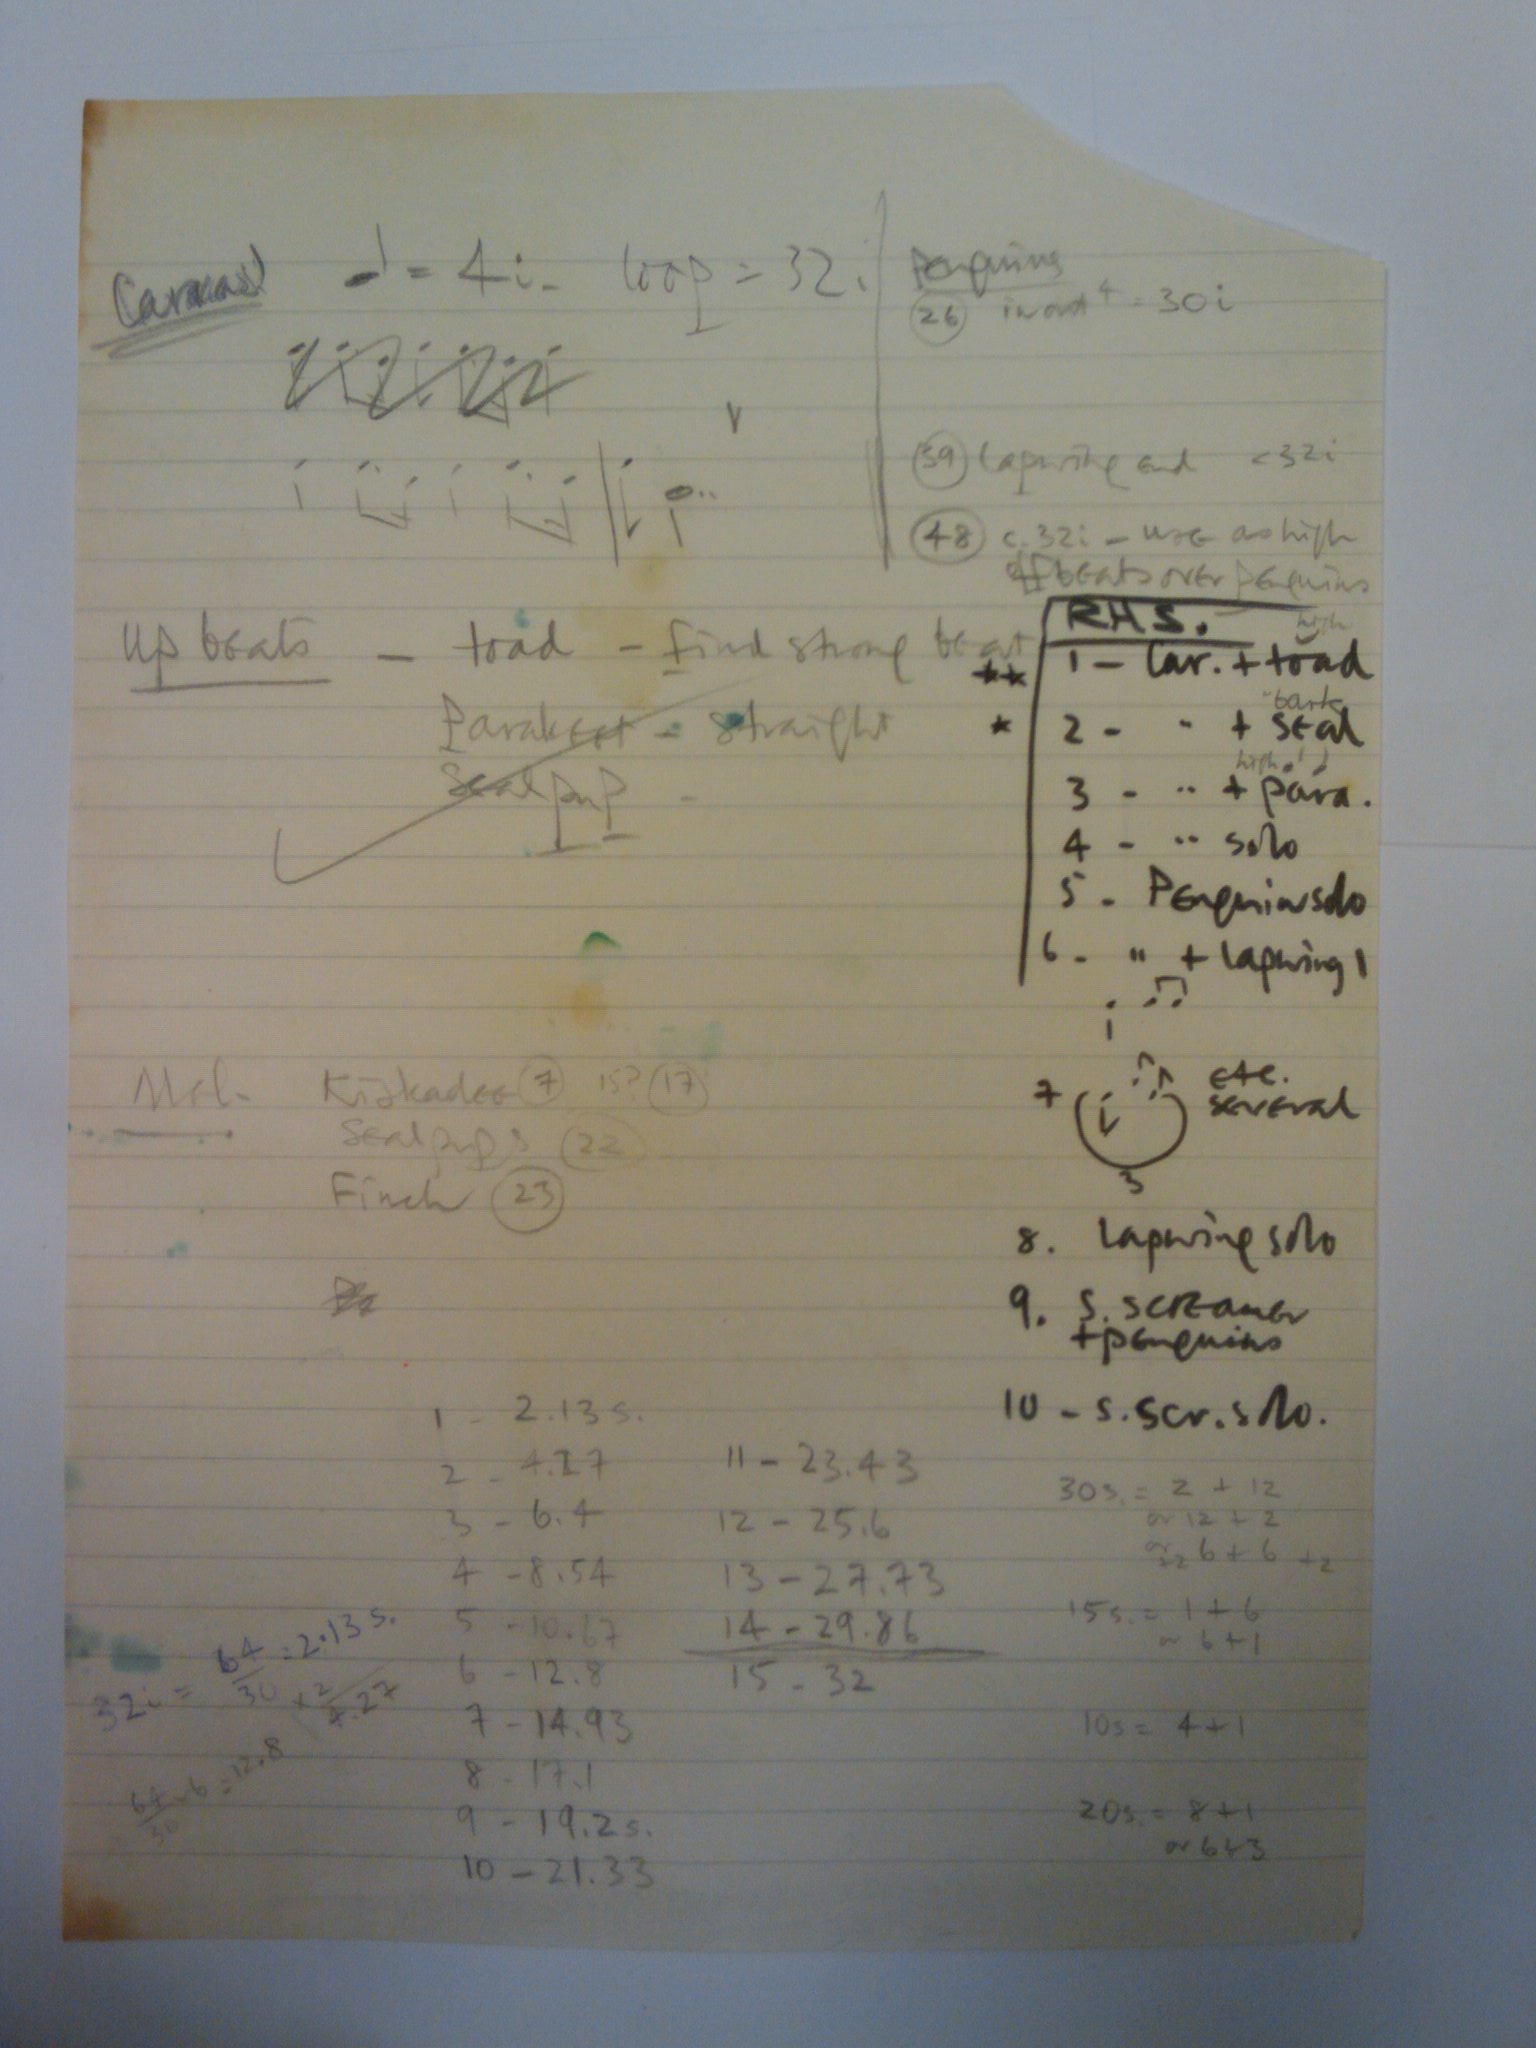 ♩ = 4i - loop = 32i
penguins
26 in out 4 = 30i
39 Lapwing end <32i
48 c. 32i - use as high
off beats over penguins
Up beats - toad - find strong beat
Parakeet - straight
Seal pup -
RHS.
high
** 1 - Car. + toad
bark
* 2 - " + seal
high
3 - " + para.
4 - " solo
5 - Penguin solo
6 - " + lapwing 1
7 etc.
several
3
8. Lapwing solo
9. S. screamer
+ penguins
10 - S. scr. solo.
Mel. Kiskadee 7 15? 17
Seal pups 22
Finch 23
1 - 2.13 s.
2 - 4.27
3 - 6.4
4 - 8.54
5 - 10.67
6 - 12.8
7 - 14.93
8 - 17.1
9 - 19.2 s.
10 - 21.33
11 - 23.43
12 - 25.6
13 - 27.73
14 - 29.86
15 - 32
30s. = 2 + 12
or 12 + 2
or 6 + 6 +2
15s. = 1 + 6
or 6 + 1
10s = 4 + 1
20s. = 8 + 1
or 6 + 3
32i = 64/30 = 2.13 s.
x 2
4.27
64/30 x 6 = 12.8